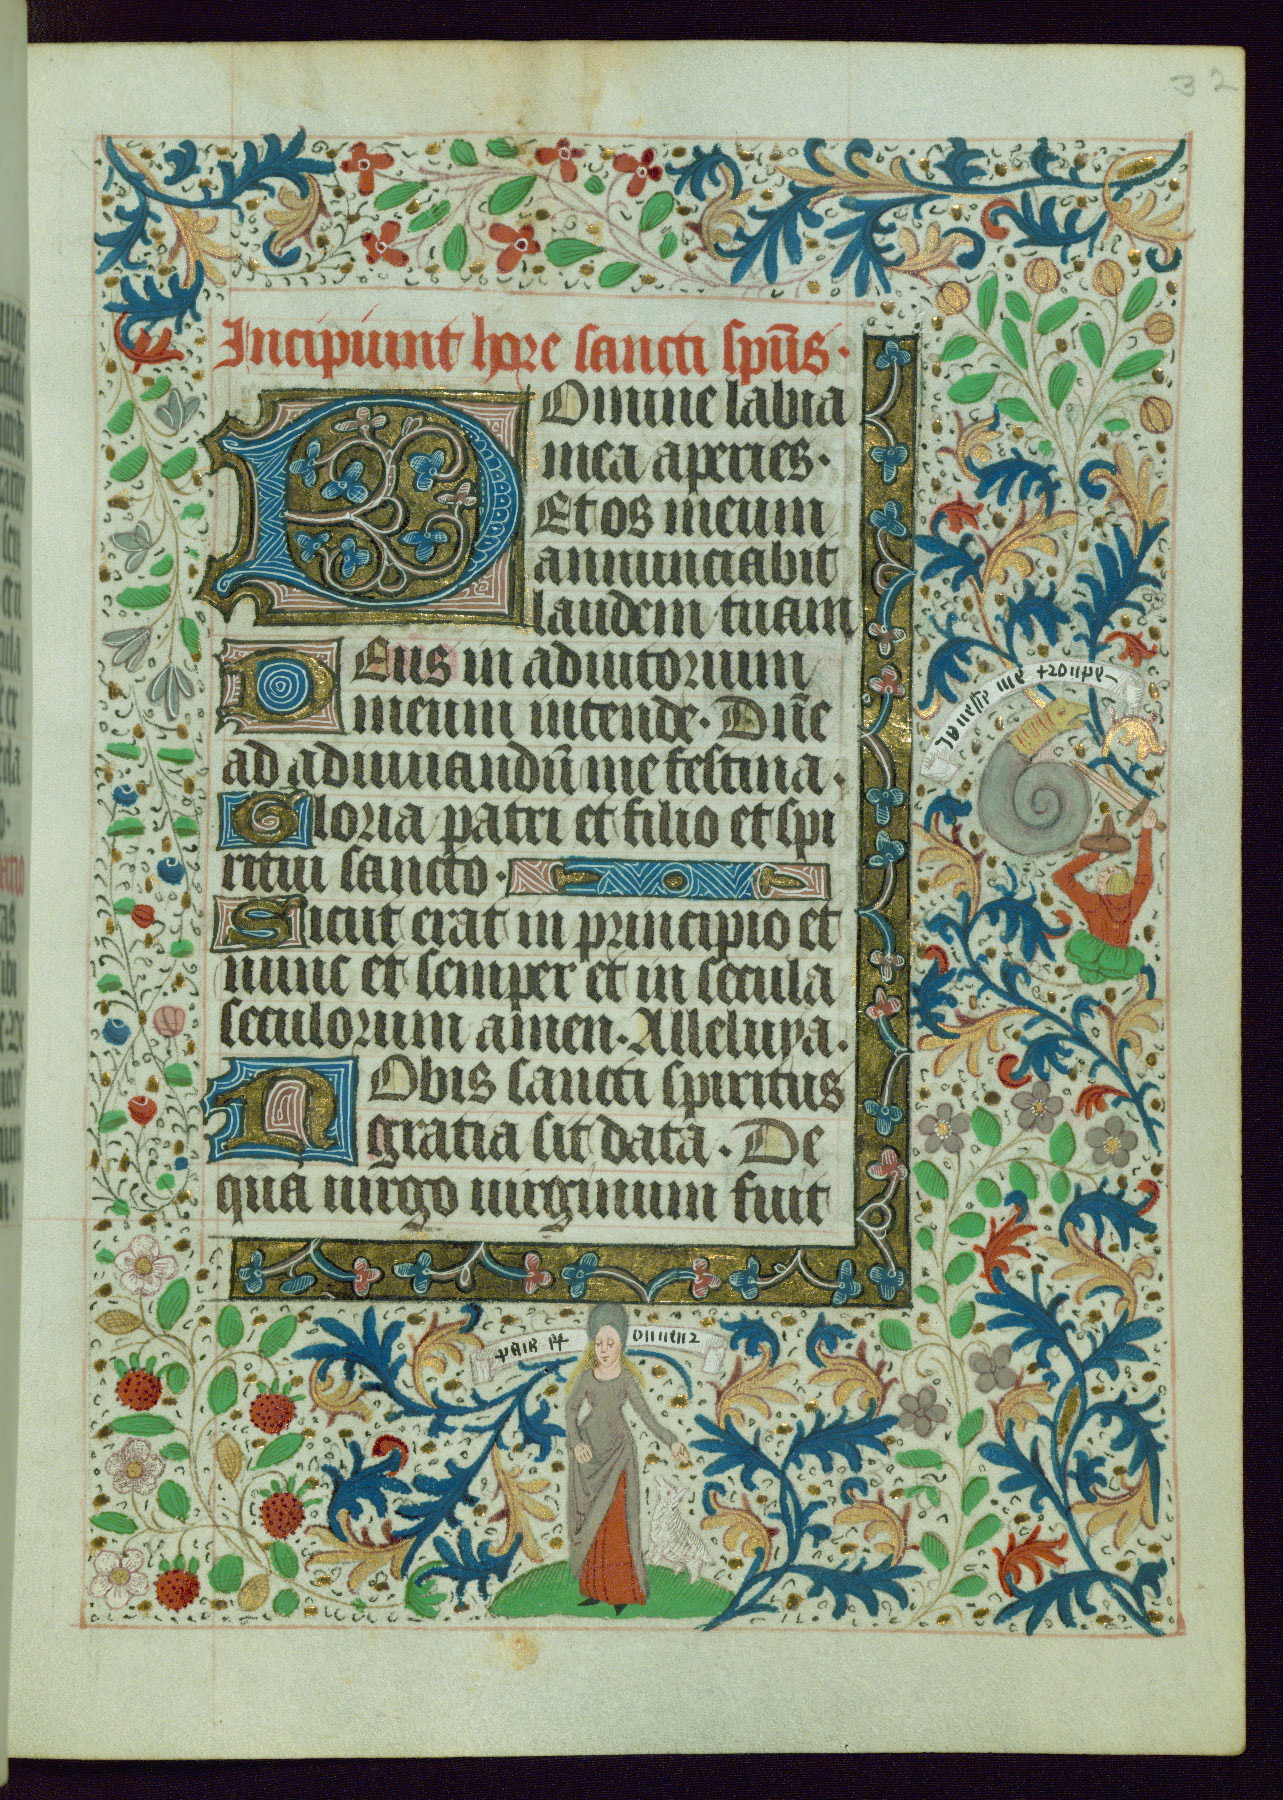 32
Incipiunt hore sancti spūs.
Domine labia
mea aperies.
Et os meum
annunciabit
laudem tuam
Deus in adiutorium
meum intende. Dn̄e
ad adiuuandū me festina.
Gloria patri et filio et spi
ritui sancto.
Sicut erat in principio et
nunc et semper et in secula
seculorum amen. Alleluya.
Nobis sancti spiritus
gratia sit data. De
qua uirgo uirginum fuit